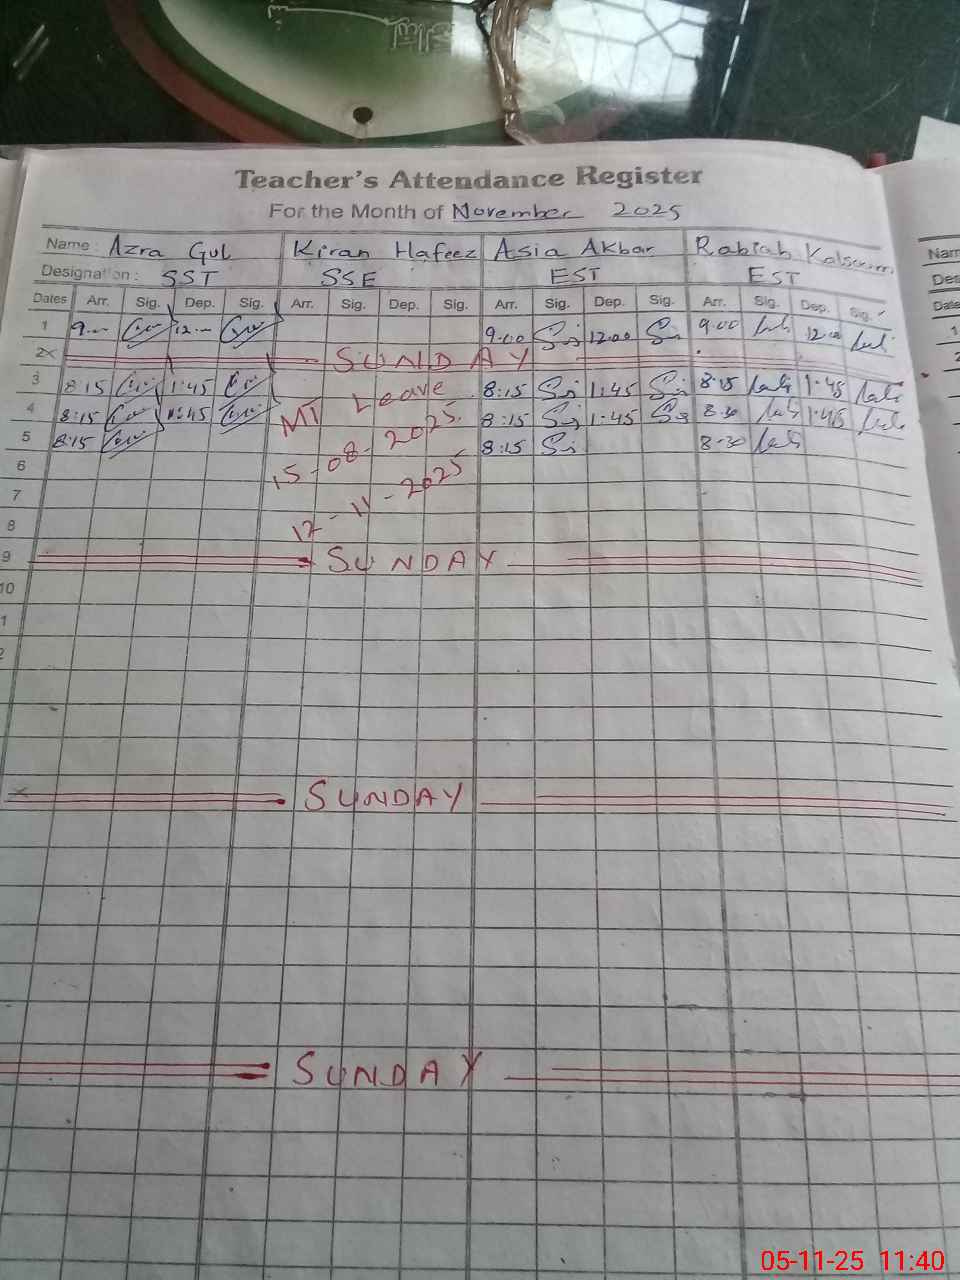 Teacher's Attendance Register
For the Month of November 2025
Name: Azra Gul Kiran Hafeez Asia Akbar Rabiah Kalsoom Nam
Designation: SST SSE EST EST Des
Dates Arr. Sig. Dep. Sig. Arr. Sig. Dep. Sig. Arr. Sig. Dep. Sig. Arr. Sig. Dep. Sig. Date
1 9.00 12.00 9.00 12.00 9.00 12.00 1
2x SUNDAY 2
3 8:15 1:45 8:15 1:45 8:15 1:45
MT Leave
4 8:15 1:45 8:15 1:45 8:30 1:45
5 8:15 8:15 8-30
15-08-2025
6
7
12-11-2025
8
9 SUNDAY
10
1
2
x SUNDAY
SUNDAY
05-11-25 11:40